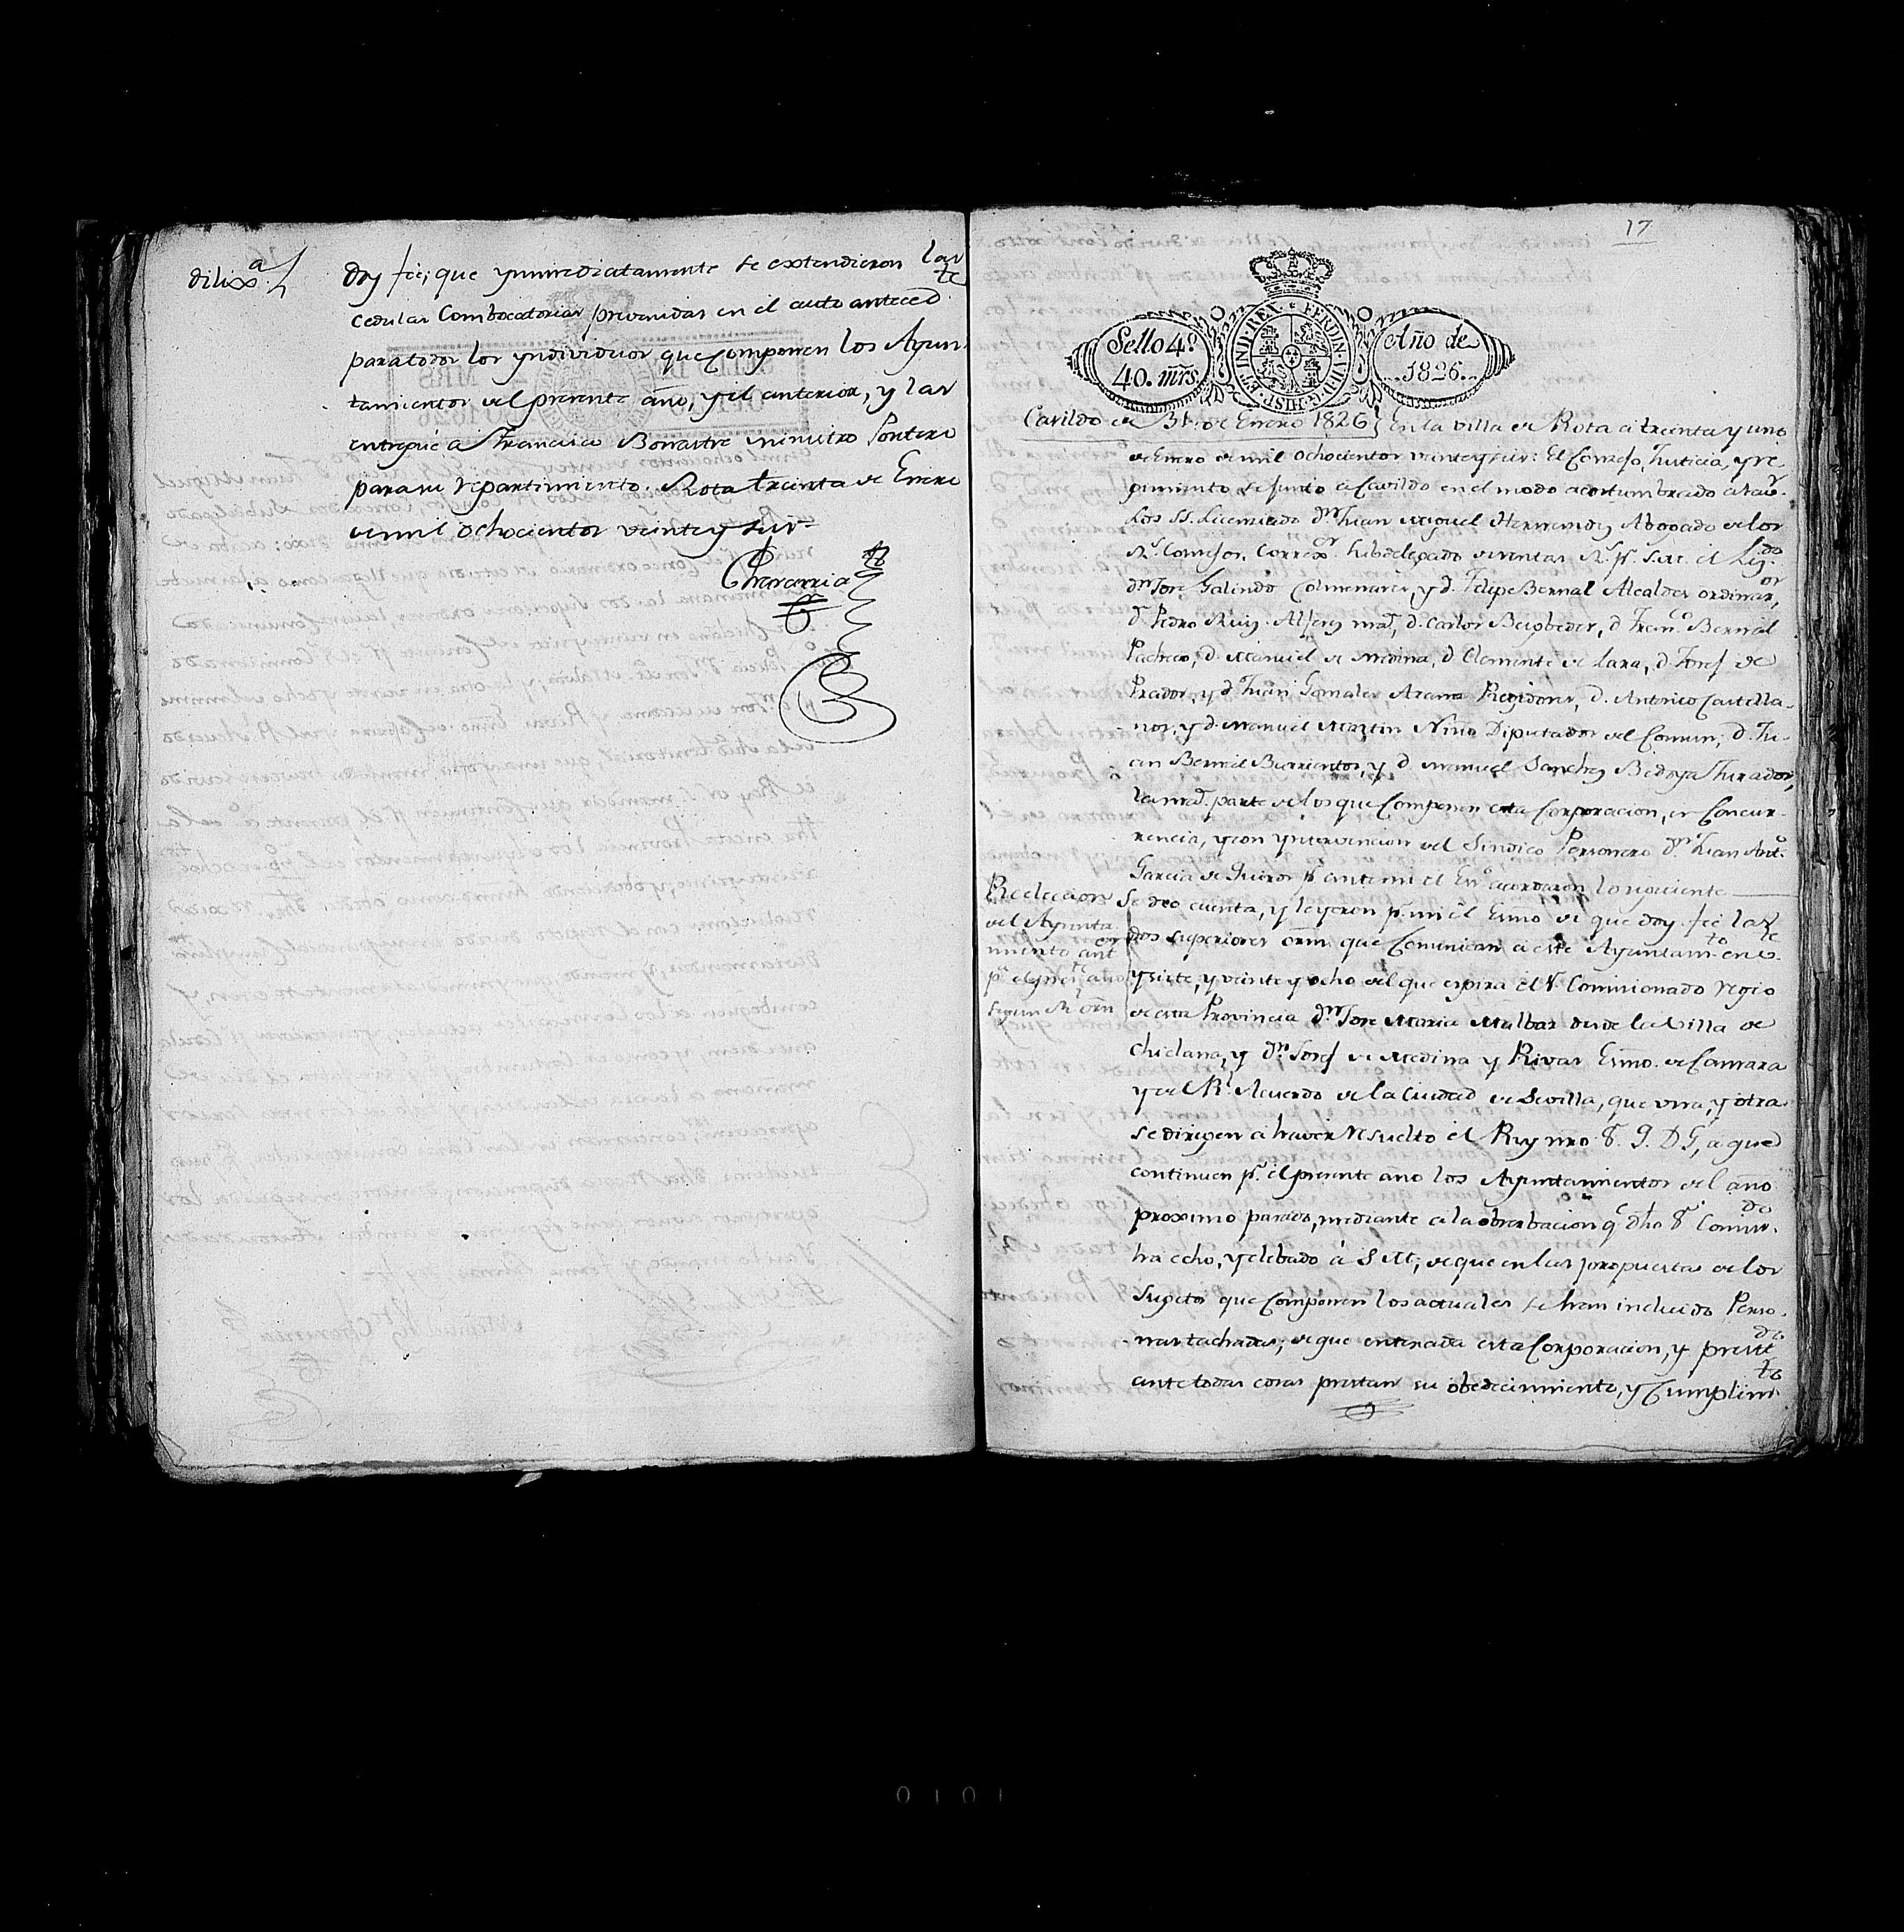 dilixa
Doy fe, que ynmediatamente se extendieron las
cedulas Combocatorias prevenidas en el auto antecedte
para todos los yndividuos que Componen los Ayun
tamientos del presente año, y el anterior, y las
entregué a Francisco Bonrostre ministro Portero
para su repartimiento. Rota treinta de Enero
de mil ochocientos veinte y seis
Chavarria
17
Sello 4º
40. mrs
FERDIN. VII. D. G. HISP. ET IND. REX
Año de
1826
Cavildo de 31. de Enero 1826 } En la villa de Rota a treinta y uno
de Enero de mil ochocientos veinte y seis: El Consejo, Justicia, y re
gimiento se junto a Cavildo en el modo acostumbrado a saver
Los SS. Licenciado Dn Juan Miguel Hernandez Abogado de los
Rs Consejos, Correxor Subdelegado de rentas Rs pr S.M. el Lizdo
Dn Jose Galindo Colmenares, y D. Felipe Bernal Alcaldes ordinarios,
Dn Pedro Ruiz Alferez mayr, D. Carlos Beigbeder, D Franco Bernal
Pacheco, D. Manuel de Medina, D Clemente de Lara, D. Josef de
Prados, y D Juan Gonzalez Arana Regidores, D. Antonio Castella-
nos, y D. Manuel Martin Niño Diputados del Comun, D. Ju-
an Bernal Barrientos, y D. Manuel Sanchez Bedoya Jurados,
la mayr parte de los que Componen esta Corporacion, en Concur-
rencia, y con yntervencion del Sindico Personero Dn Juan Anto
Garcia de Quiros pr ante mi el Esno acordaron lo siguiente
Reeleccion
del Ayunta
miento antor
pa el preste año
segun Rl orn
Se dio cuenta, y leyeron pr mi el Esmo de que doy fee las
dos superiores orns que Comunican a este Ayuntamto en vte
y siete, y veinte y ocho del que espira el Sr Comisionado regio
de esta Provincia Dn Jose Maria Malbar desde la Villa de
Chiclana, y Dn Josef de Medina y Rivas Esmo. de Camara
y del Rl Acuerdo de la Ciudad de Sevilla, que una, y otra
se dirigen a haver resuelto el Rey nro S. Q. D. G, a que
continuen pr el presente año los Ayuntamientos del año
proximo pasado, mediante a la obserbacion qe dho Sr Comisdo
ha echo, y elebado á S M; de que en las propuestas de los
Sugetos que Componen los actuales se han incluido Perso-
nas tachadas; de que enterada esta Corporacion, y prestdo
ante todas cosas prestan su obedecimiento, y Cumplimto
0101